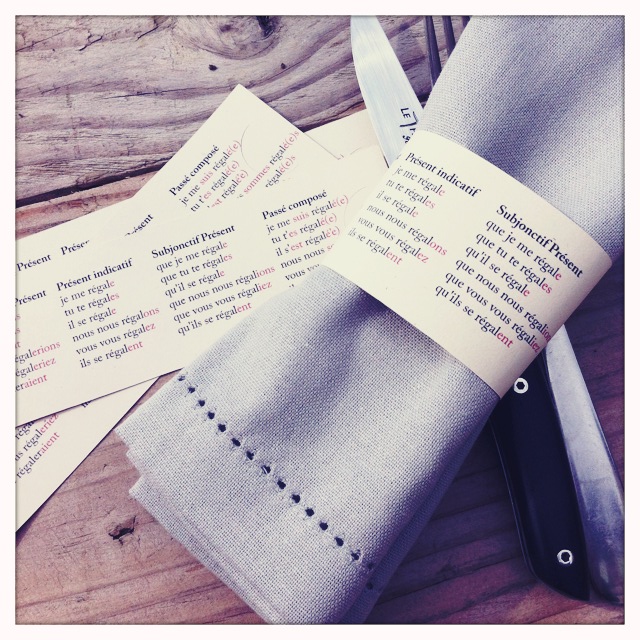 LE
Présent indicatif
je me régale
tu te régales
il se régale
nous nous régalons
vous vous régalez
ils se régalent
Subjonctif Présent
que je me régale
que tu te régales
qu'il se régale
que nous nous régalions
que vous vous régaliez
qu'ils se régalent
Passé composé
je me suis régalé(e)
tu t'es régalé(e)
il s'est régalé(e)
nous nous sommes régalé(e)s
Présent
Présent
Présent
Présent indicatif
je me régale
tu te régales
il se régale
nous nous régalons
vous vous régalez
ils se régalent
Subjonctif Présent
que je me régale
que tu te régales
qu'il se régale
que nous nous régalions
que vous vous régaliez
qu'ils se régalent
Passé composé
je me suis régalé(e)
tu t'es régalé(e)
il s'est régalé(e)
nous nous
vous vous
ils se sont
régalerions
régaleriez
régaleraient
régaleriez
régaleraient